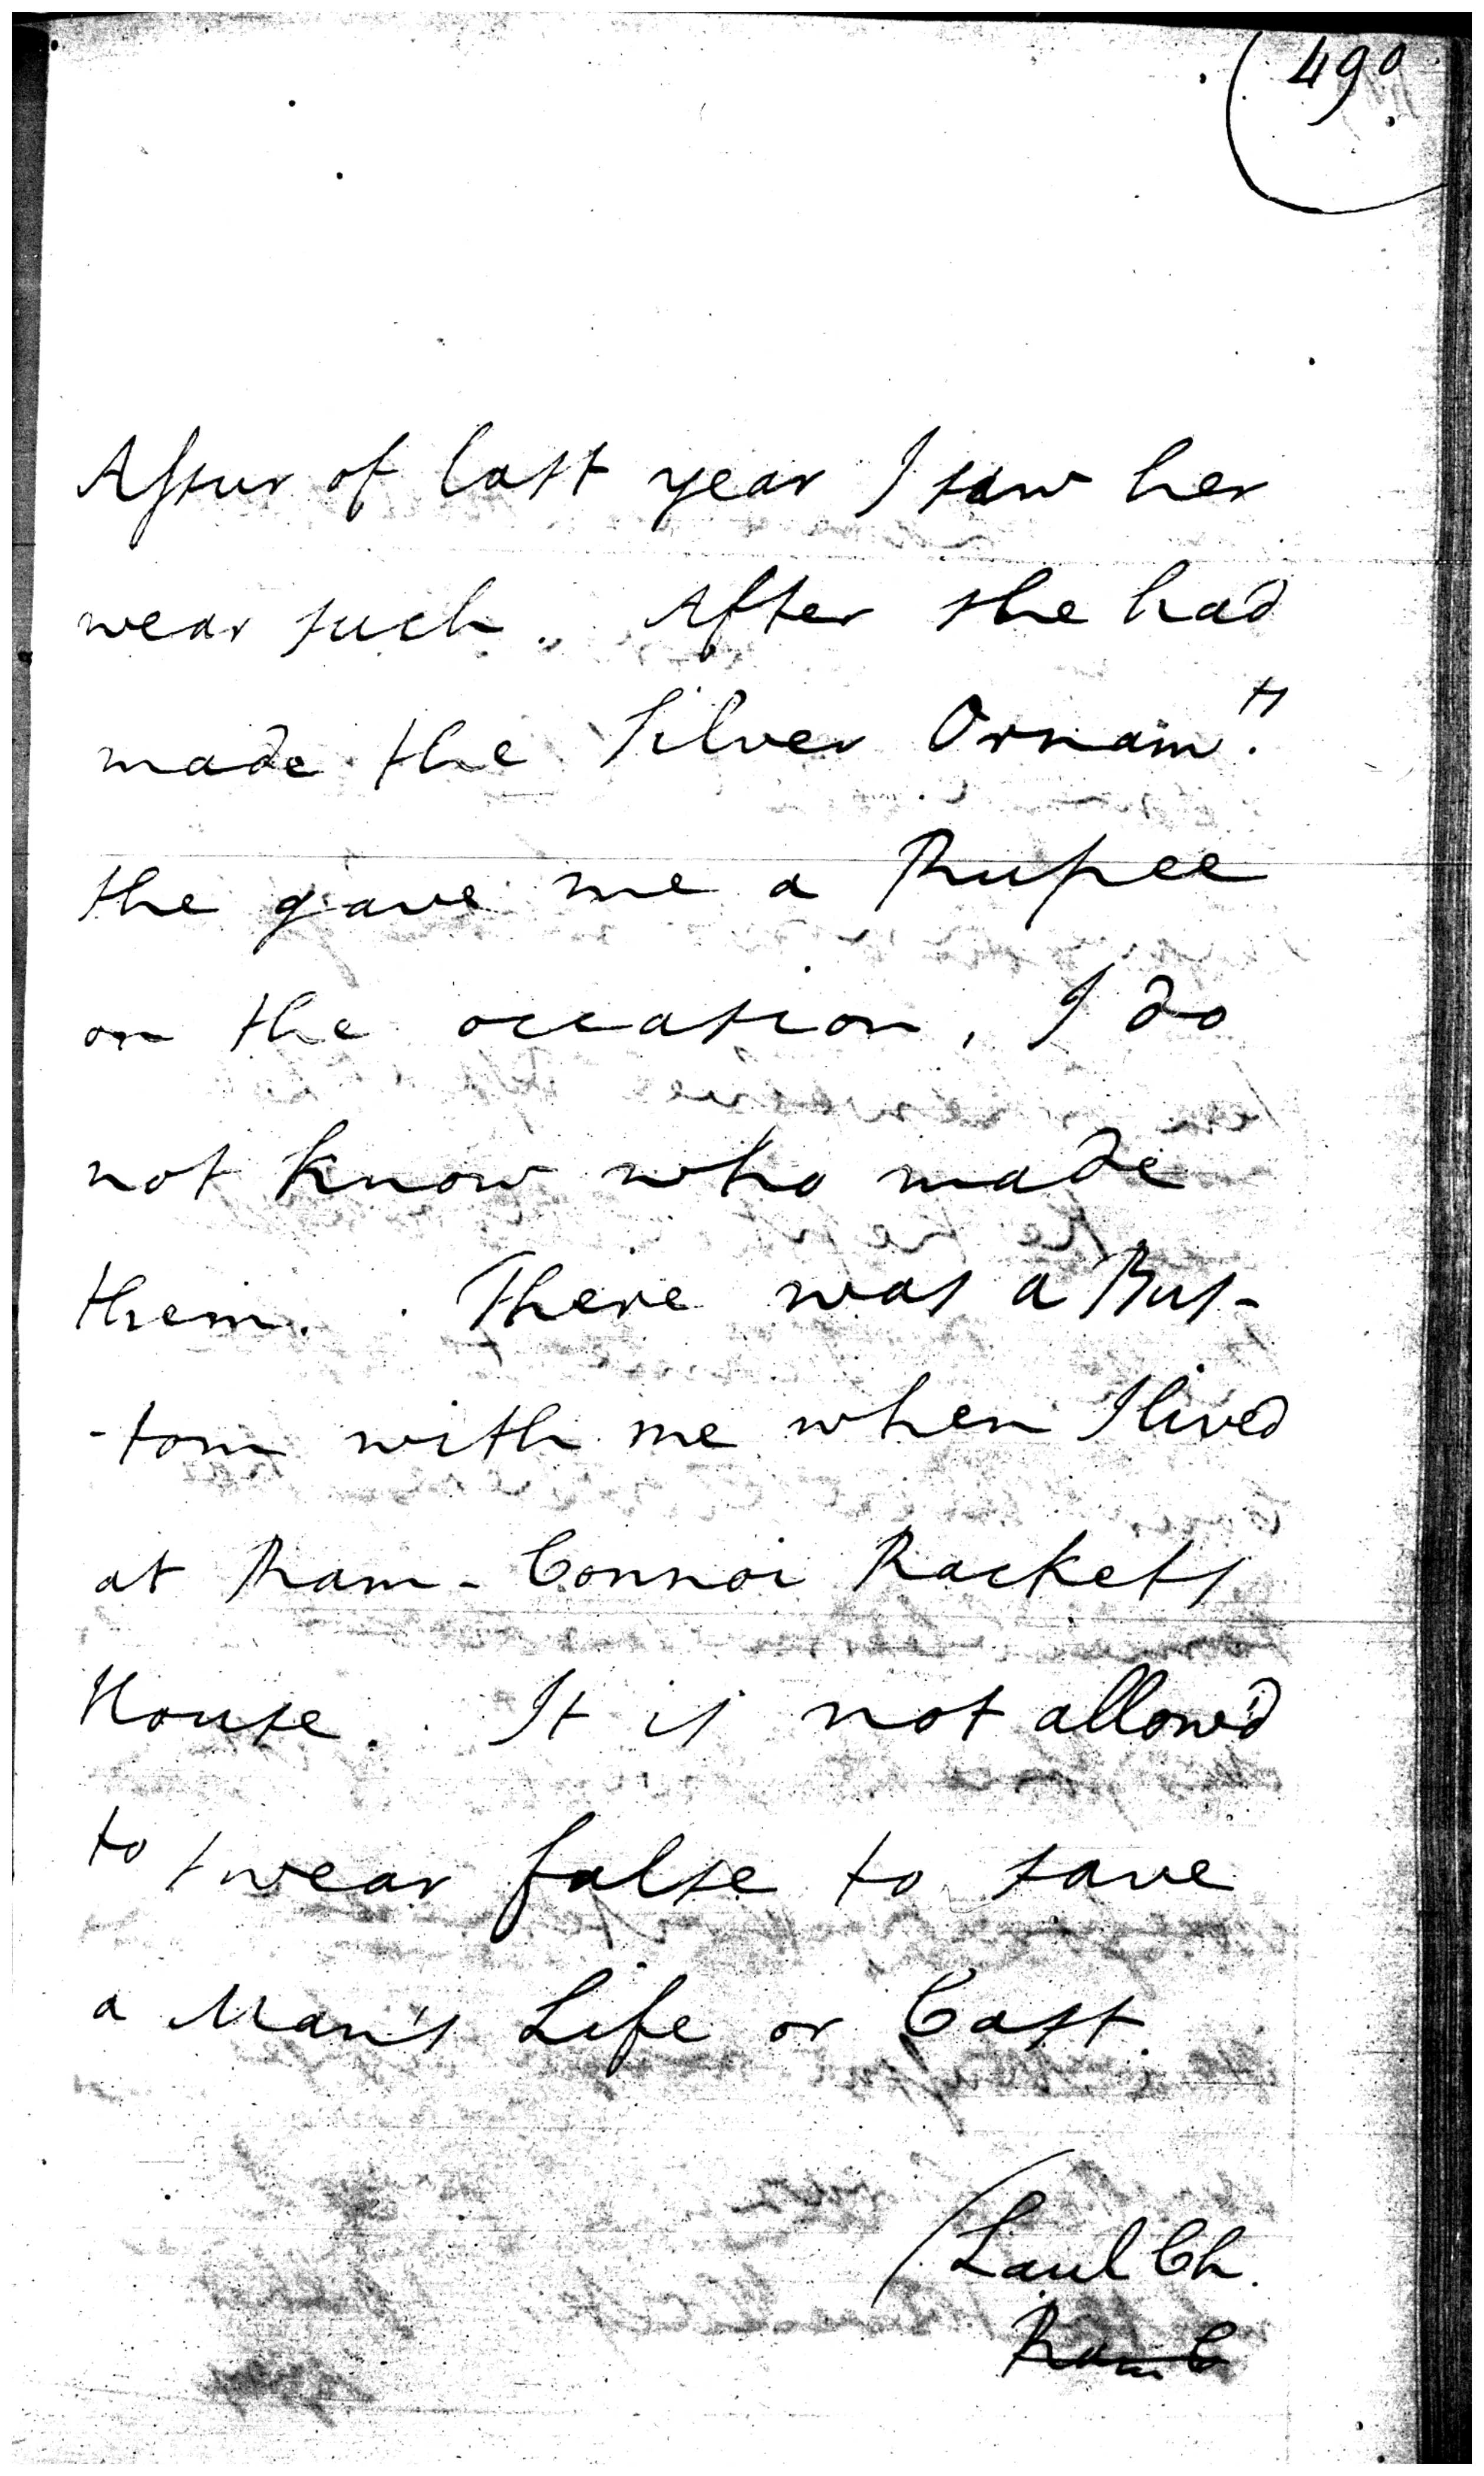 490
Assur of last year I saw her
wear such. After she had
made the Silver Ornam.ts
she gave me a Rupee
on the occasion, I do
not know who made
them. There was a Bus-
-tom with me when I lived
at Ram-Connoi Rackets
House. It is not allow'd
to swear false to save
a Man's Life or Cast.
(Laul Ch.
Ram C